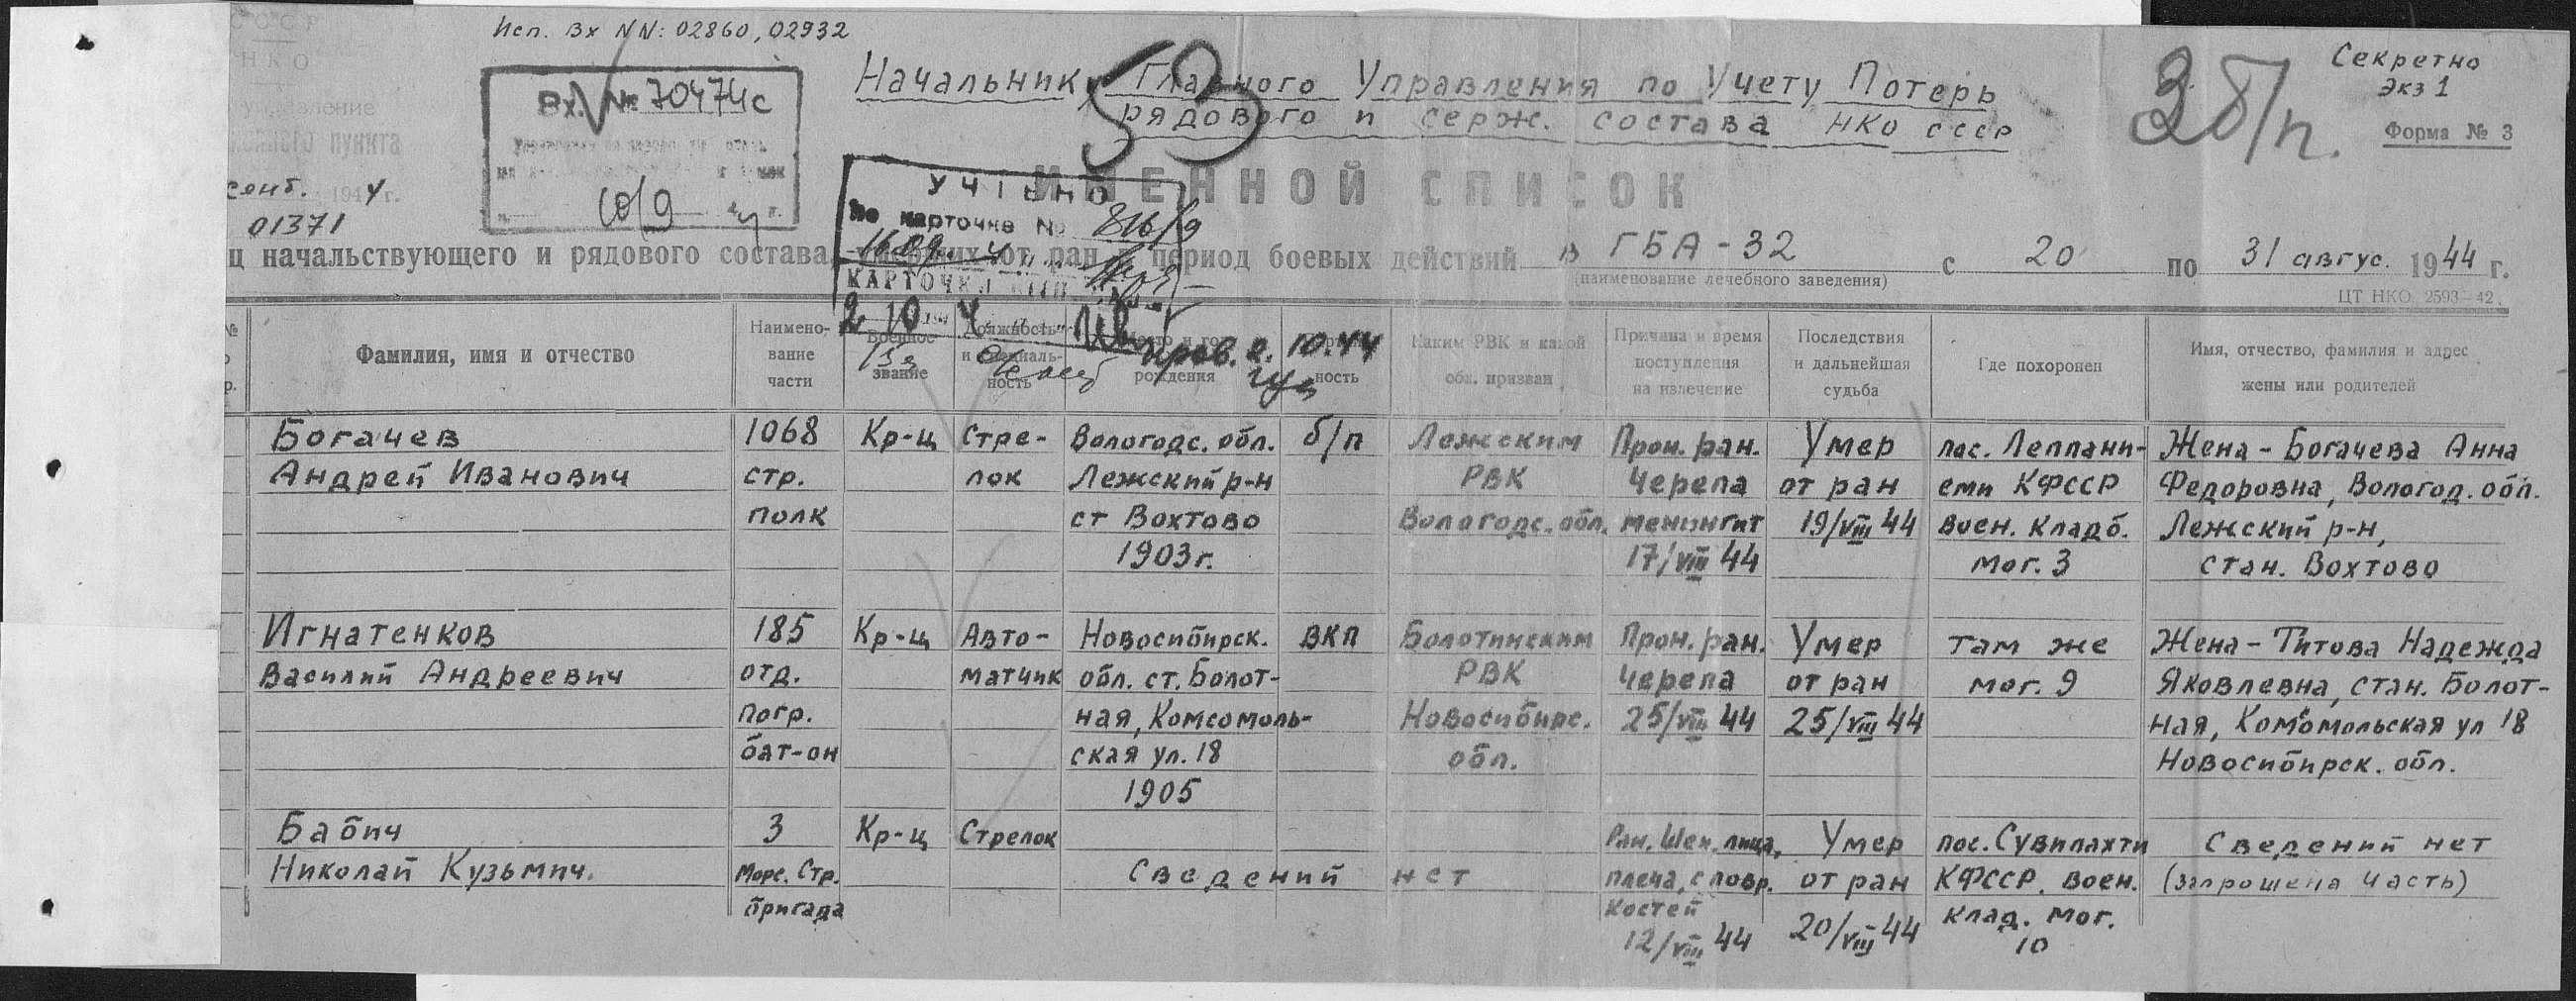 Исп. Вх NN: 02860, 02932
Секретно
Экз 1
Форма № 3
СССР
НКО
Вх. № 70474с
10/9
Начальнику Главного Управления по Учету Потерь
рядового и серж. состава НКО СССР
50
пункта
сент. 1944 г.
01371
УЧТЕНО
По карточке №
ИМЕННОЙ СПИСОК
ц начальствующего и рядового состава, умерших от ран в период боевых действий в ГБА-32 с 20 по 31 авгус. 1944 г.
(наименование лечебного заведения)
ЦТ НКО 2593—42.
КАРТОЧКА
2 10
пров. 2.10.44
№
Фамилия, имя и отчество
Наимено-
вание
части
Военное
звание
Должность
и специаль-
ность
рождения
ность
Каким РВК и какой
обл. призван
Причина и время
поступления
на излечение
Последствия
и дальнейшая
судьба
Где похоронен
Имя, отчество, фамилия и адрес
жены или родителей
Богачев
Андрей Иванович
1068
стр.
полк
Кр-ц
Стре-
лок
Вологодс. обл.
Лежский р-н
ст Вохтово
1903 г.
б/п
Лежским
РВК
Вологодс. обл.
Прон. ран.
черепа
менингит
17/VIII 44
Умер
от ран
19/VIII 44
пос. Леппани-
еми КФССР
воен. кладб.
мог. 3
Жена - Богачева Анна
Федоровна, Вологод. обл.
Лежский р-н,
стан. Вохтово
Игнатенков
Василий Андреевич
185
отд.
погр.
бат-он
Кр-ц
Авто-
матчик
Новосибирск.
обл. ст. Болот-
ная, Комсомоль-
ская ул. 18
1905
ВКП
Болотинским
РВК
Новосибирс.
обл.
Прон. ран.
черепа
25/VIII 44
Умер
от ран
25/VIII 44
там же
мог. 9
Жена - Титова Надежда
Яковлевна, стан. Болот-
ная, Комсомольская ул 18
Новосибирск. обл.
Бабич
Николай Кузьмич.
3
Морс. Стр.
бригада
Кр-ц
Стрелок
Сведений нет
Ран. шеи, лица,
плеча, с повр.
костей
12/VIII 44
Умер
от ран
20/VIII 44
пос. Сувилахти
КФССР. воен.
клад. мог.
10
Сведений нет
(запрошена часть)